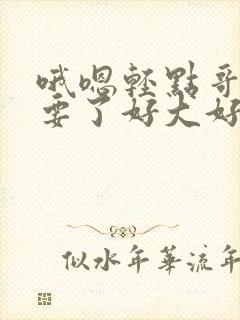 哦嗯轻點哥
要了好大好
似水年華流年